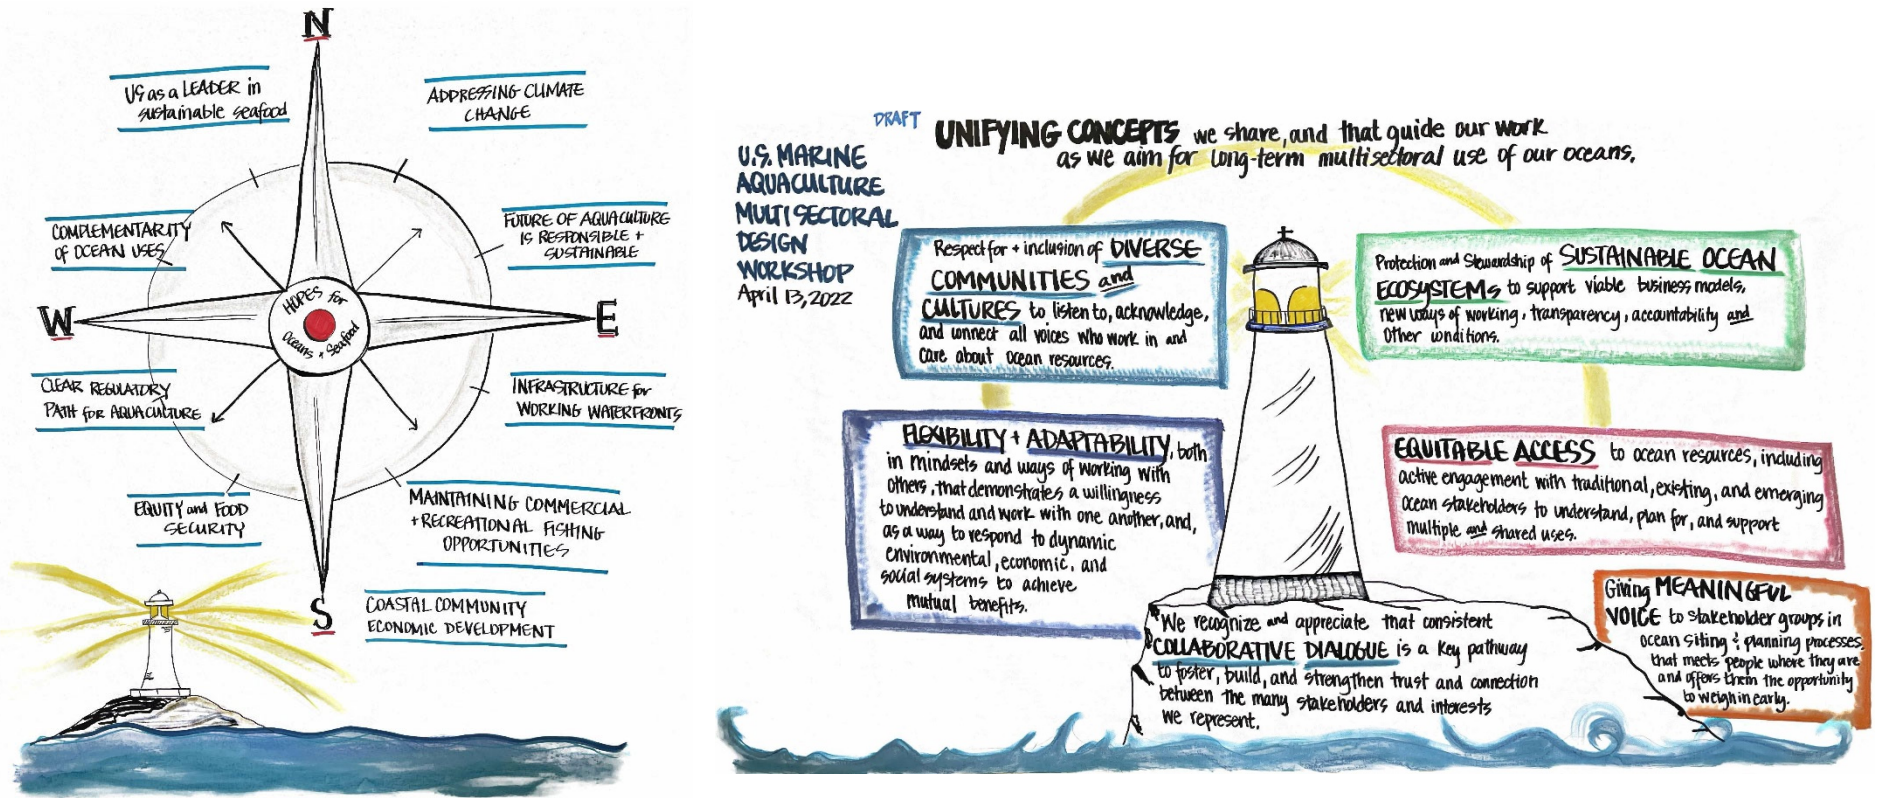 N
US as a LEADER in
sustainable seafood
ADDRESSING CLIMATE
CHANGE
COMPLEMENTARITY
OF OCEAN USES
FUTURE OF AQUACULTURE
IS RESPONSIBLE +
SUSTAINABLE
W
HOPES for
Oceans + Seafood
E
CLEAR REGULATORY
PATH for AQUACULTURE
INFRASTRUCTURE for
WORKING WATERFRONTS
EQUITY and FOOD
SECURITY
MAINTAINING COMMERCIAL
+ RECREATIONAL FISHING
OPPORTUNITIES
S
COASTAL COMMUNITY
ECONOMIC DEVELOPMENT
DRAFT
UNIFYING CONCEPTS we share, and that guide our work
as we aim for long-term multisectoral use of our oceans.
U.S. MARINE
AQUACULTURE
MULTISECTORAL
DESIGN
WORKSHOP
April 13, 2022
Respect for + inclusion of DIVERSE
COMMUNITIES and
CULTURES to listen to, acknowledge,
and connect all voices who work in and
care about ocean resources.
Protection and Stewardship of SUSTAINABLE OCEAN
ECOSYSTEMS to support viable business models,
new ways of working, transparency, accountability and
Other conditions.
FLEXIBILITY + ADAPTABILITY, both
in mindsets and ways of working with
others, that demonstrates a willingness
to understand and work with one another, and,
as a way to respond to dynamic
environmental, economic, and
social systems to achieve
mutual benefits.
EQUITABLE ACCESS to ocean resources, including
active engagement with traditional, existing, and emerging
ocean stakeholders to understand, plan for, and support
multiple and shared uses.
Giving MEANINGFUL
VOICE to stakeholder groups in
ocean siting & planning processes,
that meets people where they are
and offers them the opportunity
to weigh in early.
We recognize and appreciate that consistent
COLLABORATIVE DIALOGUE is a key pathway
to foster, build, and strengthen trust and connection
between the many stakeholders and interests
we represent.